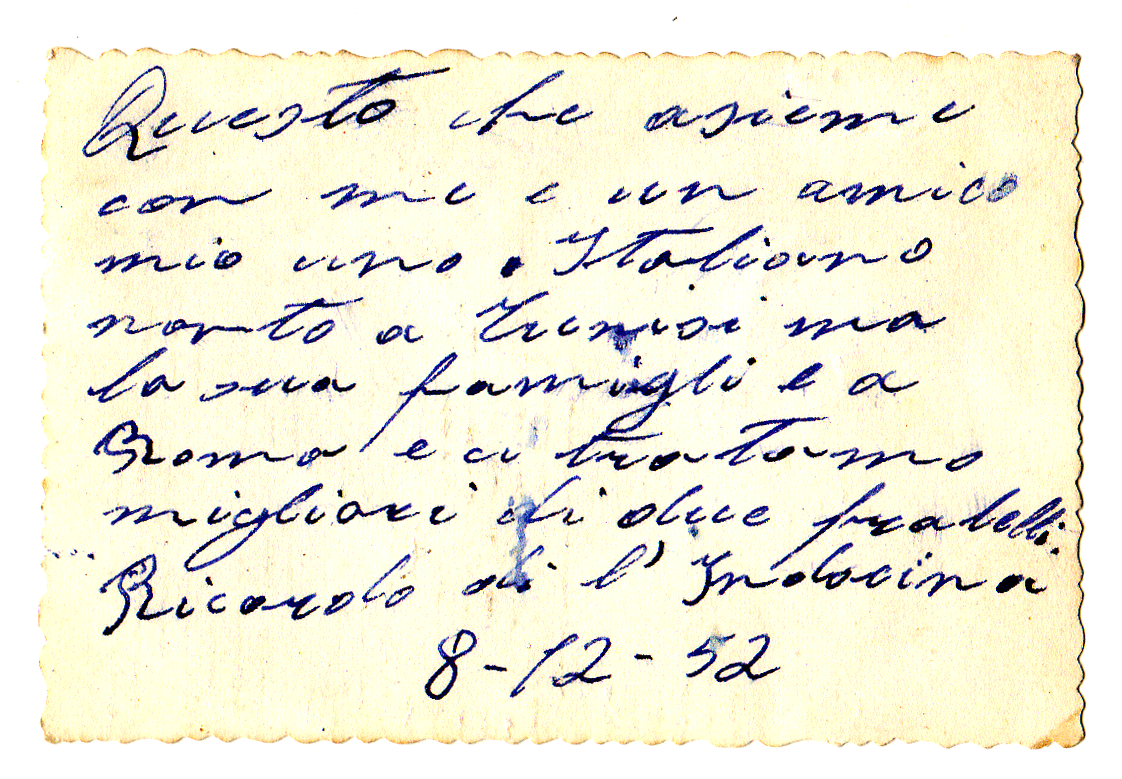 Questo che asieme
con me e un amico
mio uno Italiano
nanto a Tunisi ma
la sua famigli e a
Roma e ci tratamo
migliori di due fratelli.
Ricordo di l' Indocina
8-12-52